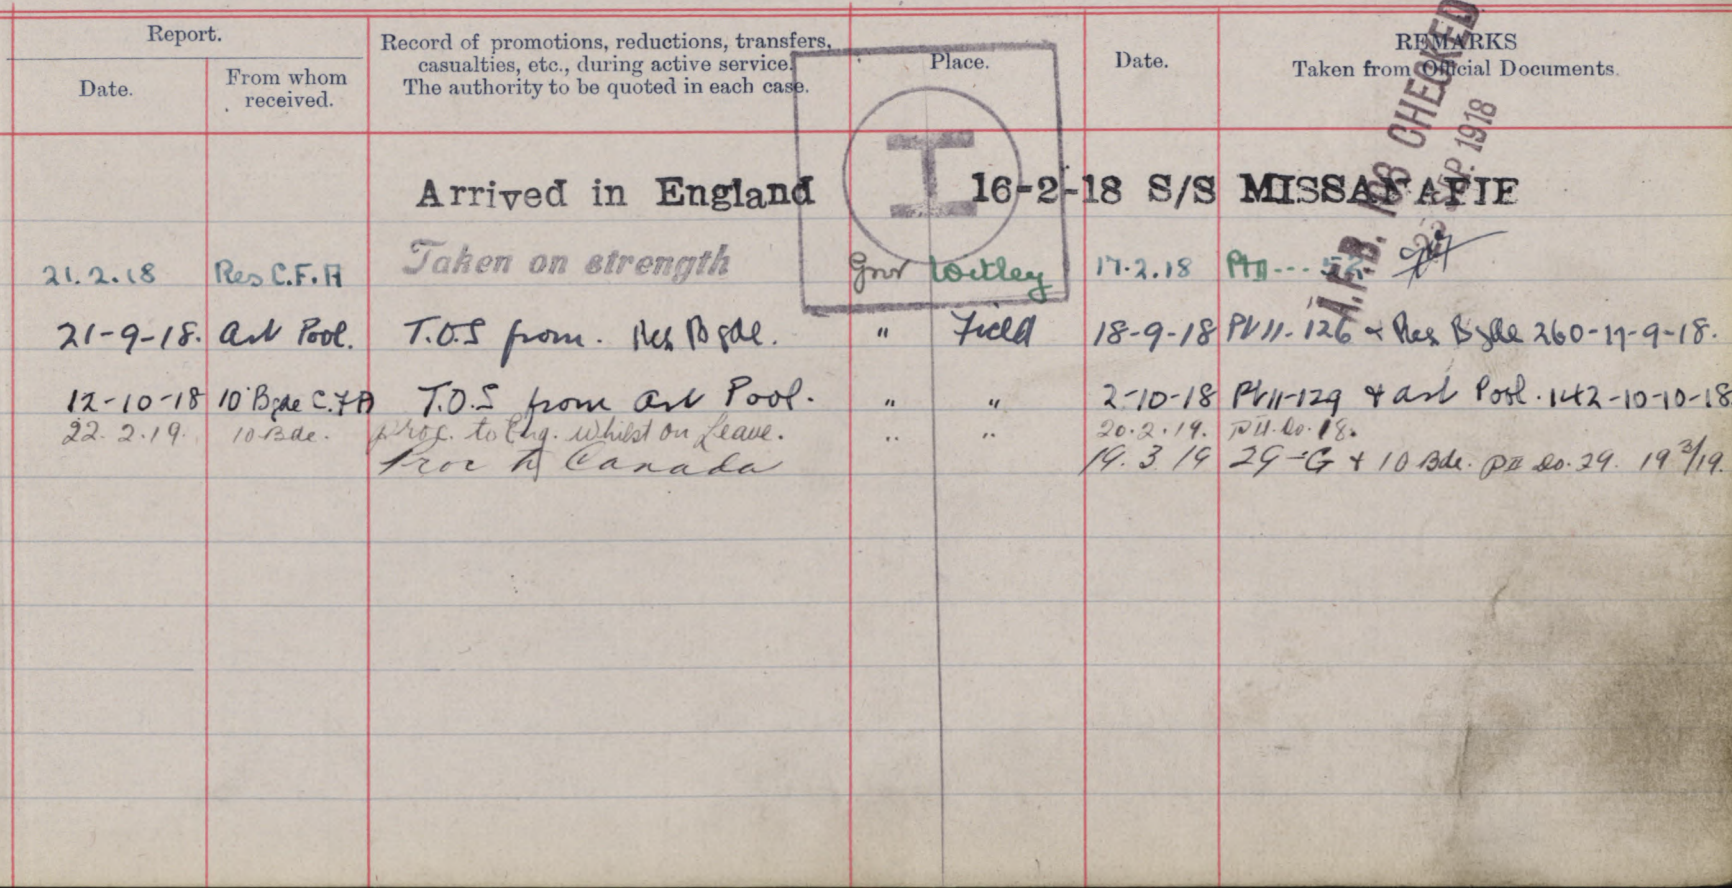 Report.
Date.
From whom
received.
Record of promotions, reductions, transfers,
casualties, etc., during active service.
The authority to be quoted in each case.
Place.
Date.
REMARKS
Taken from Official Documents.
I
A.F.B. 103 CHECKED
SEP. 1918
Arrived in England 16-2-18 S/S MISSANAFIE
21.2.18 Res C.F.A Taken on strength Gnr Witley 17.2.18 Pt II---52
21-9-18. Art Pool. T.O.S from. Res Bgde. " Field 18-9-18 Pt II-126 & Res Bgde 260-17-9-18.
12-10-18 10 Bgde C.F.A T.O.S from Art Pool. " " 2-10-18 Pt II-129 & Art Pool. 142-10-10-18
22.2.19. 10 Bde. proc. to Eng. whilst on Leave. " " 20.2.19. P II. Do. 18.
Proc to Canada 19.3.19 29-G & 10 Bde. P II Do. 29. 19 3/19.